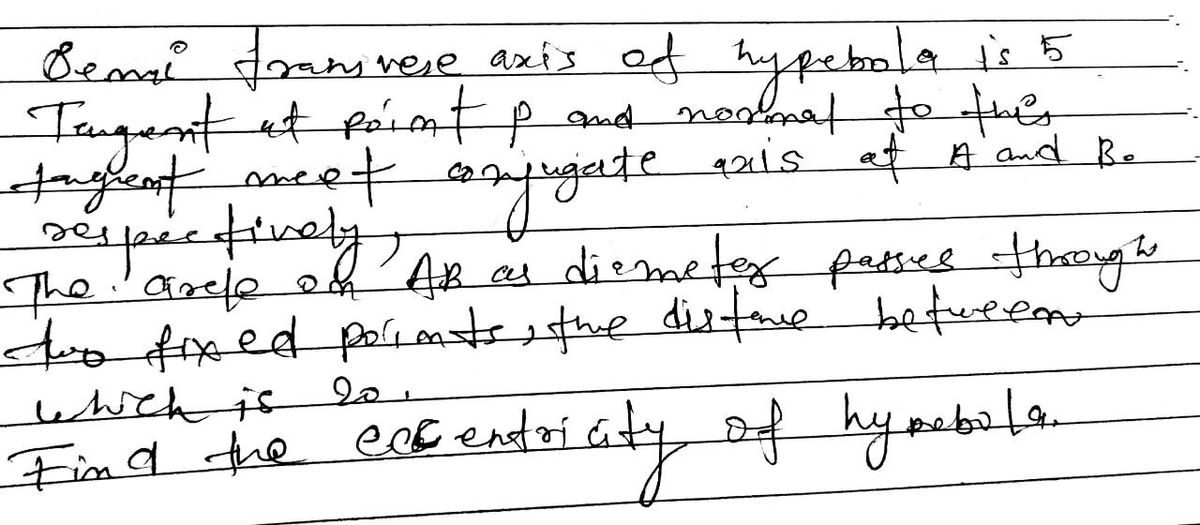 Semi transvese axis of hypebola is 5
Tangent at point P and normal to this
tangent meet conjugate axis at A and B.
respectively,
The circle on AB as diameter passes through
two fixed points, the distance between
which is 20.
Find the eccentricity of hypebola.